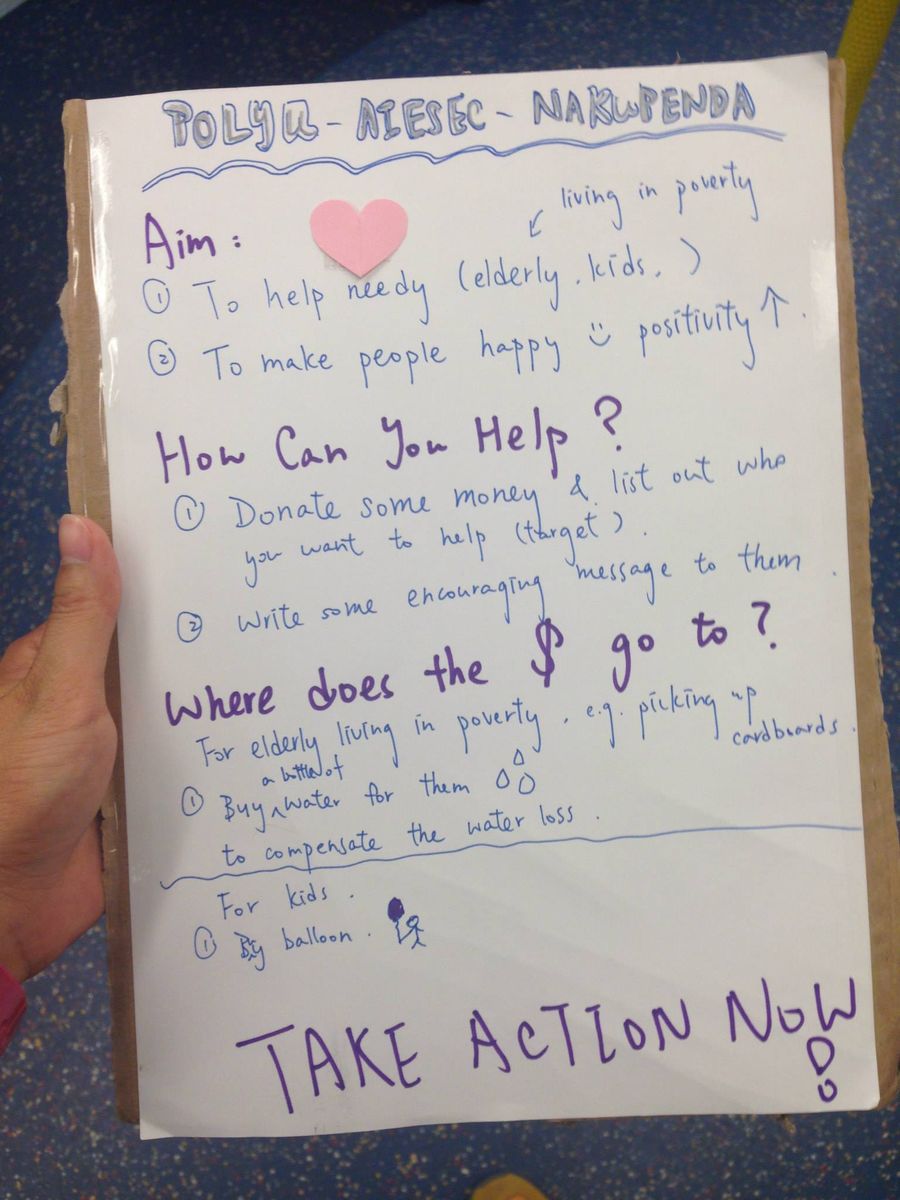 POLYU - AIESEC - NAKUPENDA
living in poverty
Aim :
① To help needy (elderly, kids, )
② To make people happy positivity ↑ .
How Can You Help ?
① Donate some money & list out who
you want to help (target) .
② Write some encouraging message to them .
Where does the $ go to ?
For elderly living in poverty , e.g. picking up
cardboards .
a bottle of
① Buy ^ water for them
to compensate the water loss .
For kids .
① By balloon .
TAKE ACTION NOW !